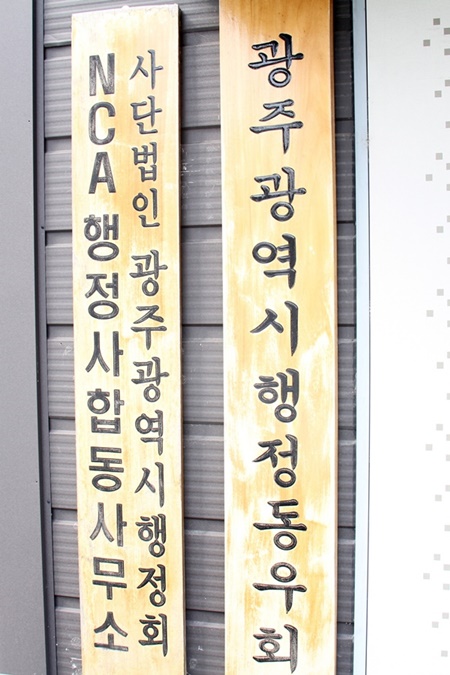 사단법인 광주광역시행정회
NCA행정사합동사무소
광주광역시행정동우회